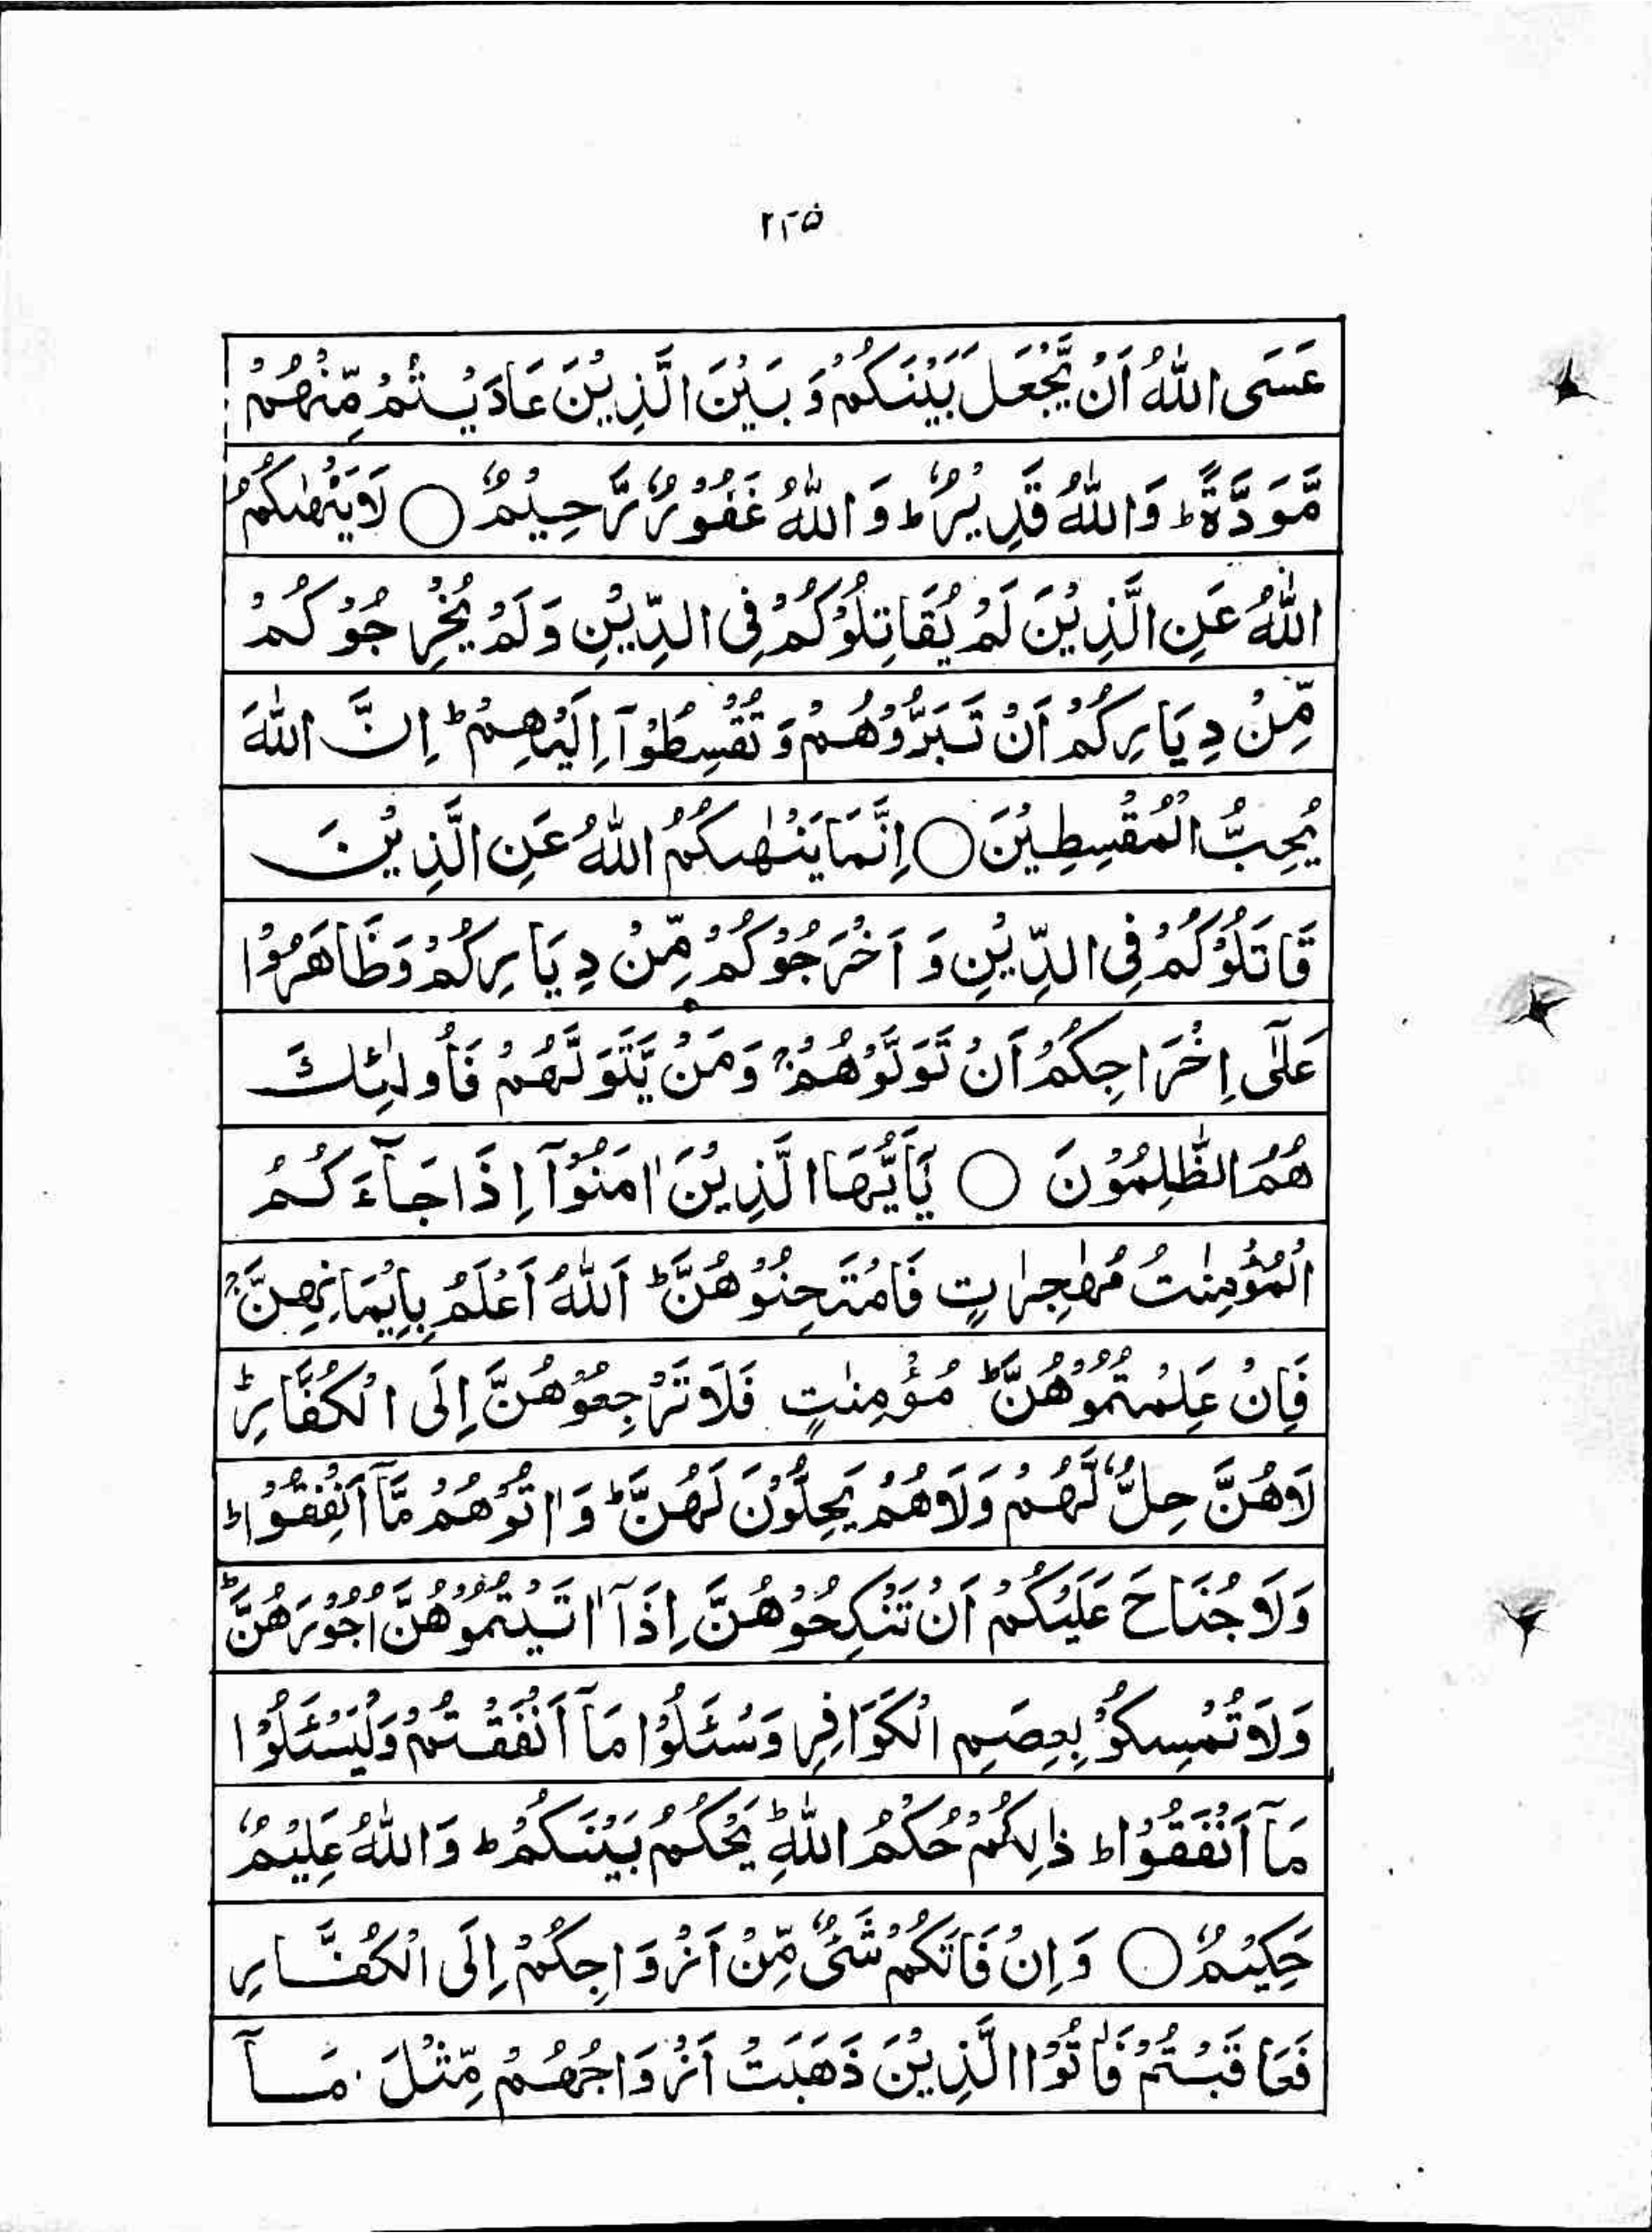 ۲۲۵
عَسَى اللّٰهُ اَنْ يَّجْعَلَ بَيْنَكُمْ وَ بَيْنَ الَّذِيْنَ عَادَيْتُمْ مِّنْهُمْ
مَّوَدَّةً ؕ وَ اللّٰهُ قَدِيْرٌ ؕ وَ اللّٰهُ غَفُوْرٌ رَّحِيْمٌ ○ لَا يَنْهٰىكُمُ
اللّٰهُ عَنِ الَّذِيْنَ لَمْ يُقَاتِلُوْكُمْ فِى الدِّيْنِ وَ لَمْ يُخْرِجُوْكُمْ
مِّنْ دِيَارِكُمْ اَنْ تَبَرُّوْهُمْ وَ تُقْسِطُوْۤا اِلَيْهِمْ ؕ اِنَّ اللّٰهَ
يُحِبُّ الْمُقْسِطِيْنَ ○ اِنَّمَا يَنْهٰىكُمُ اللّٰهُ عَنِ الَّذِيْنَ
قَاتَلُوْكُمْ فِى الدِّيْنِ وَ اَخْرَجُوْكُمْ مِّنْ دِيَارِكُمْ وَ ظَاهَرُوْا
عَلٰۤى اِخْرَاجِكُمْ اَنْ تَوَلَّوْهُمْ ۚ وَ مَنْ يَّتَوَلَّهُمْ فَاُولٰٓئِكَ
هُمُ الظّٰلِمُوْنَ ○ يٰۤاَيُّهَا الَّذِيْنَ اٰمَنُوْۤا اِذَا جَآءَكُمُ
الْمُؤْمِنٰتُ مُهٰجِرٰتٍ فَامْتَحِنُوْهُنَّ ؕ اَللّٰهُ اَعْلَمُ بِاِيْمَانِهِنَّ ۚ
فَاِنْ عَلِمْتُمُوْهُنَّ ؕ مُؤْمِنٰتٍ فَلَا تَرْجِعُوْهُنَّ اِلَى الْكُفَّارِ ؕ
لَا هُنَّ حِلٌّ لَّهُمْ وَ لَا هُمْ يَحِلُّوْنَ لَهُنَّ ؕ وَ اٰتُوْهُمْ مَّاۤ اَنْفَقُوْا ؕ
وَ لَا جُنَاحَ عَلَيْكُمْ اَنْ تَنْكِحُوْهُنَّ اِذَاۤ اٰتَيْتُمُوْهُنَّ اُجُوْرَهُنَّ ؕ
وَ لَا تُمْسِكُوْ بِعِصَمِ الْكَوَافِرِ وَ سْئَلُوْا مَاۤ اَنْفَقْتُمْ وَ لْيَسْئَلُوْا
مَاۤ اَنْفَقُوْا ؕ ذٰلِكُمْ حُكْمُ اللّٰهِ ؕ يَحْكُمُ بَيْنَكُمْ ؕ وَ اللّٰهُ عَلِيْمٌ
حَكِيْمٌ ○ وَ اِنْ فَاتَكُمْ شَىْءٌ مِّنْ اَزْوَاجِكُمْ اِلَى الْكُفَّارِ
فَعَاقَبْتُمْ فَاٰتُوا الَّذِيْنَ ذَهَبَتْ اَزْوَاجُهُمْ مِّثْلَ مَاۤ